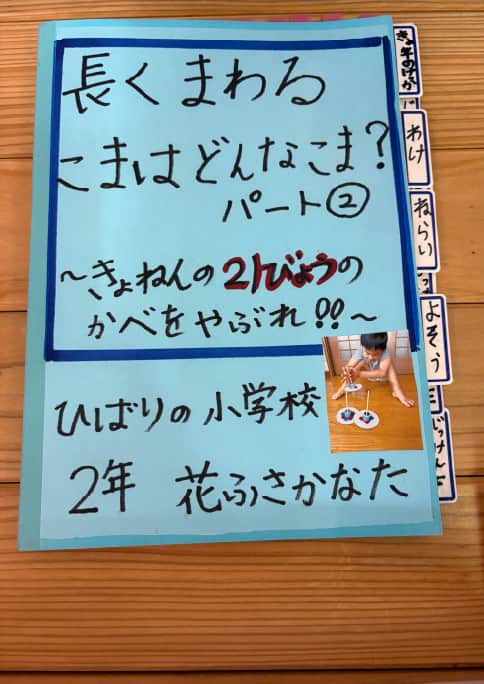 長くまわる
こまはどんなこま?
パート②
～きょねんの21びょうの
かべをやぶれ!!～
ひばりの小学校
2年 花ふさかなた
きょ年のけっか
わけ
ねらい
よそう
じっけん